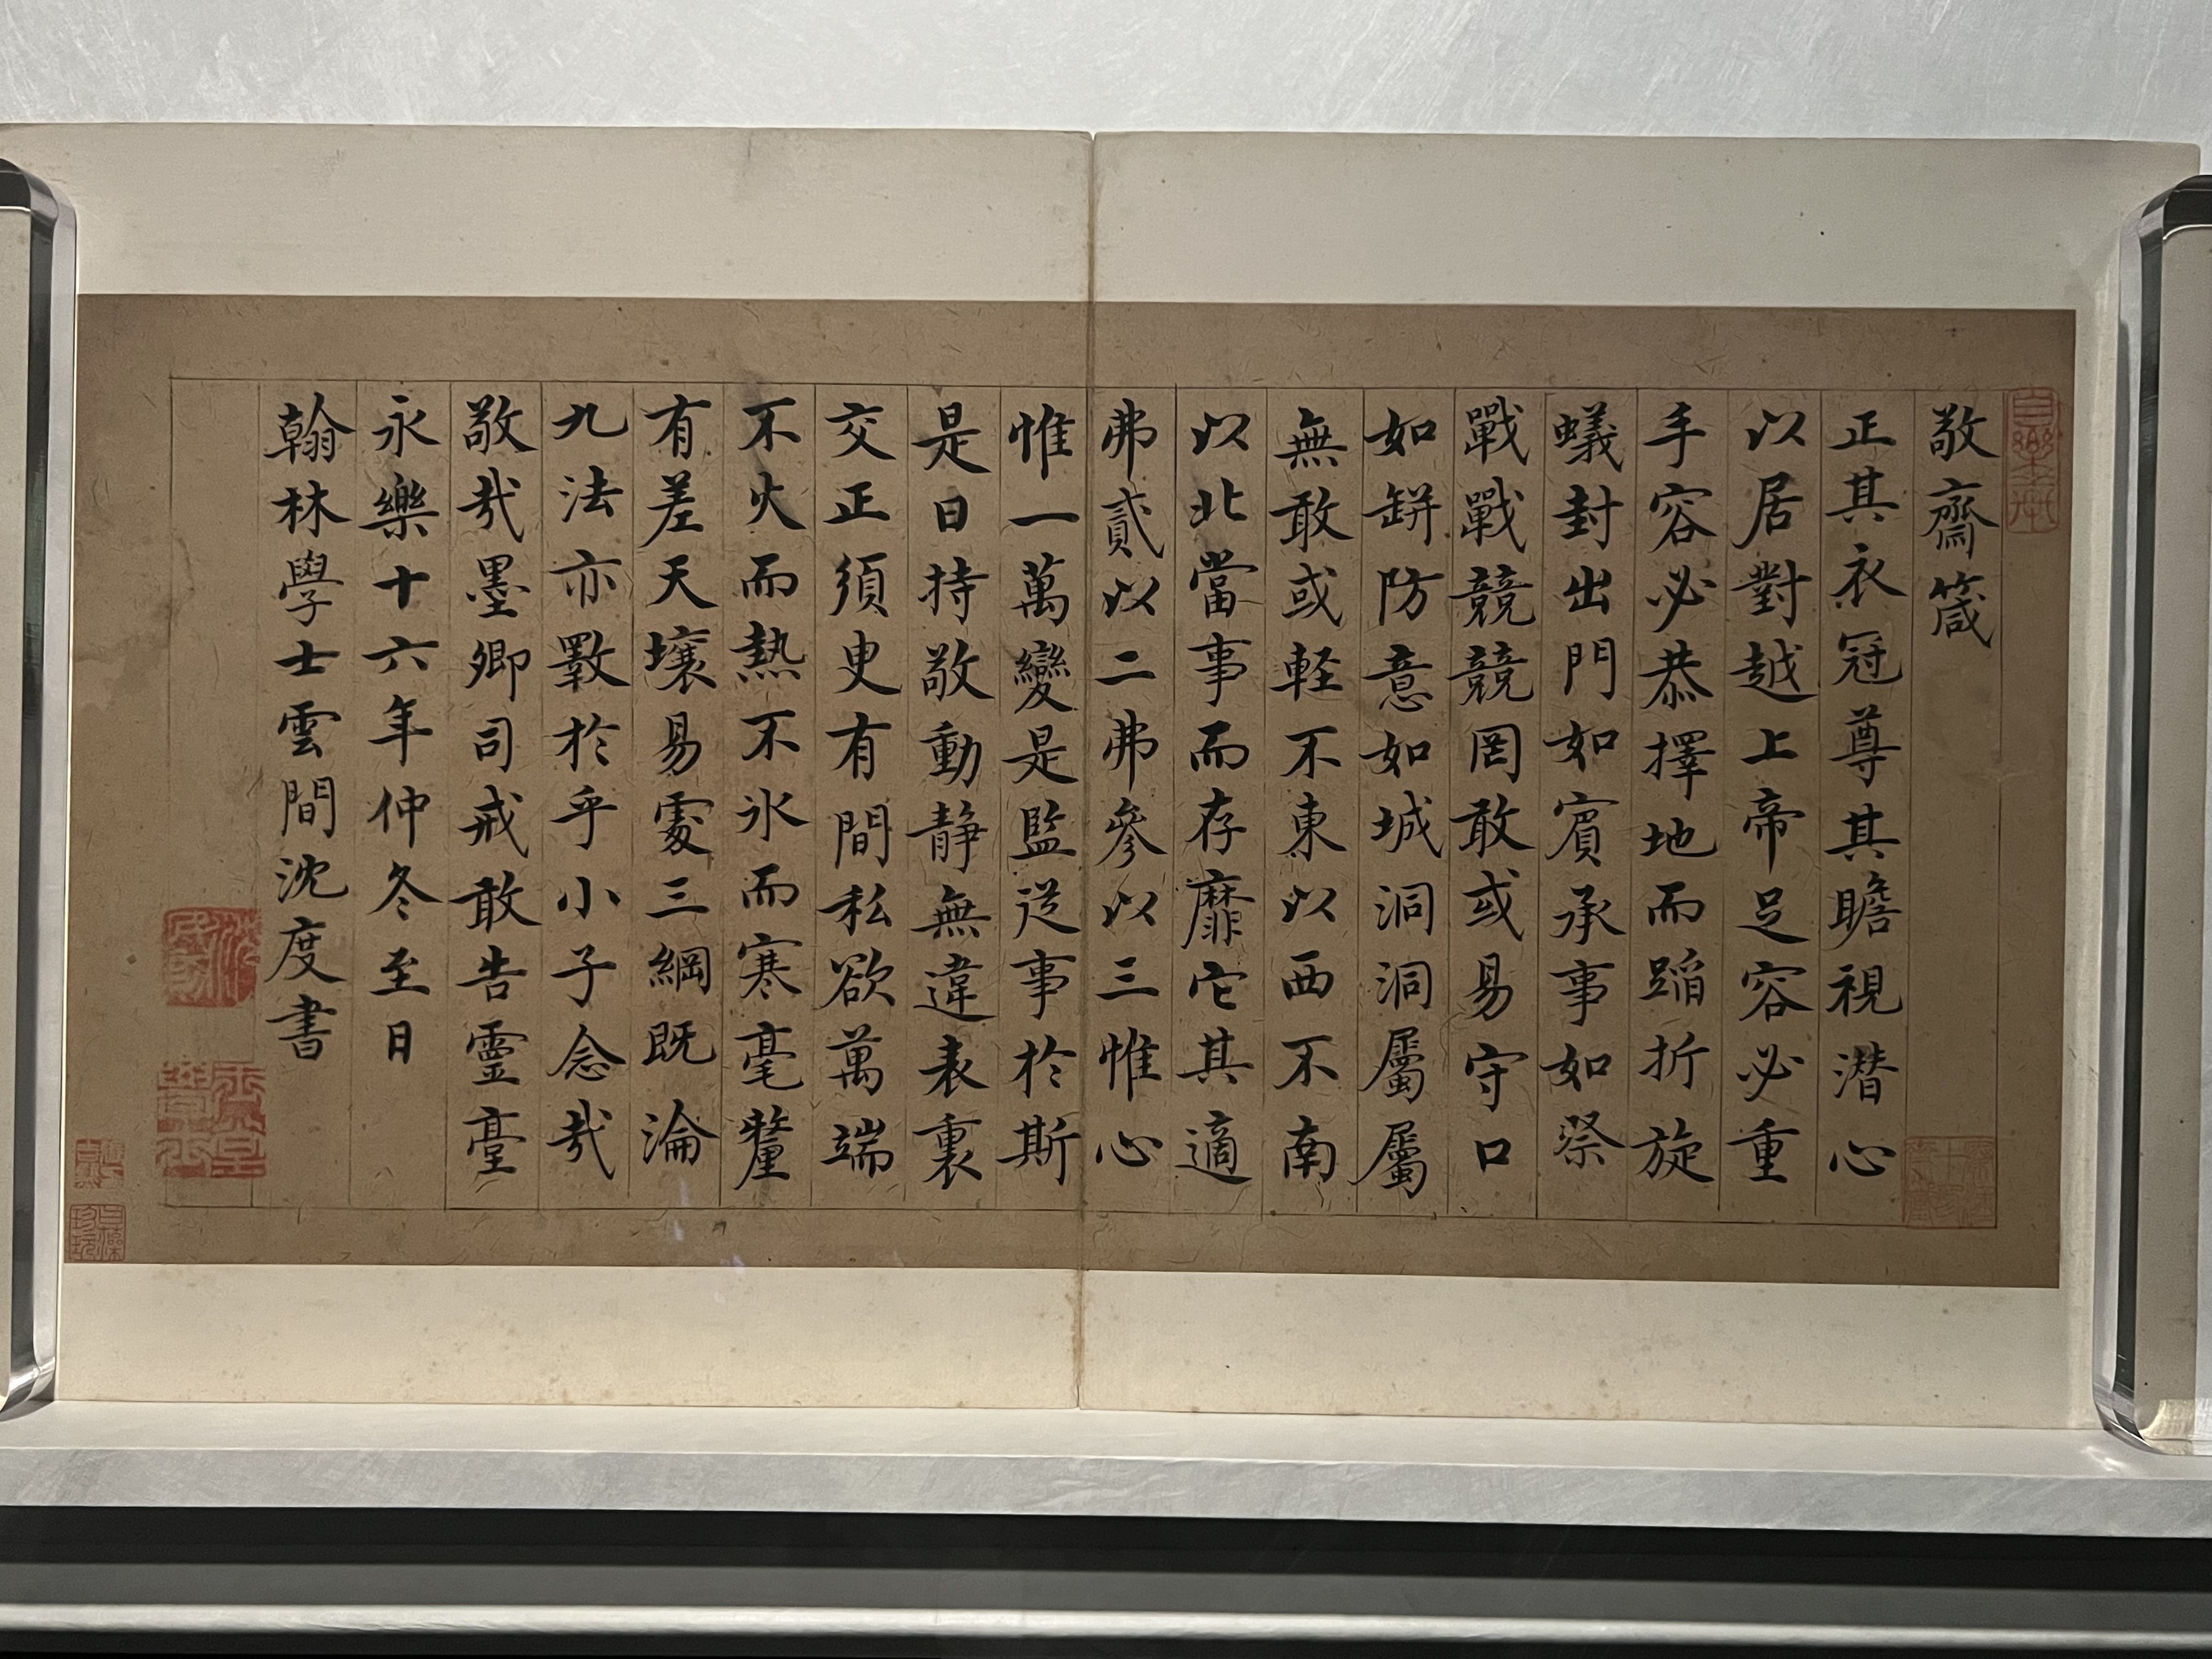 敬齋箴
正其衣冠尊其瞻視潛心
以居對越上帝足容必重
手容必恭擇地而蹈折旋
蟻封出門如賓承事如祭
戰戰兢兢罔敢或易守口
如缾防意如城洞洞屬屬
無敢或輕不東以西不南
以北當事而存靡它其適
弗貳以二弗參以三惟心
惟一萬變是監從事於斯
是日持敬動靜無違表裏
交正須臾有間私欲萬端
不火而熱不氷而寒毫釐
有差天壤易處三綱既淪
九法亦斁於乎小子念哉
敬哉墨卿司戒敢告靈臺
永樂十六年仲冬至日
翰林學士雲間沈度書